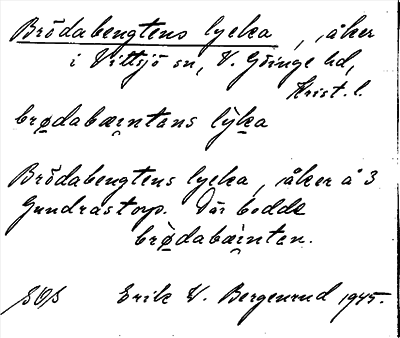 Brödabengtens lycka, åker
i Vittsjö sn, V. Göinge hd,
Krist. l.
brødabæntans lỳka
Brödabengtens lycka, åker å 3
Gundrastorp. Där bodde
brødabæ̀nten.
SOS Erik W. Bergenrud 1945.